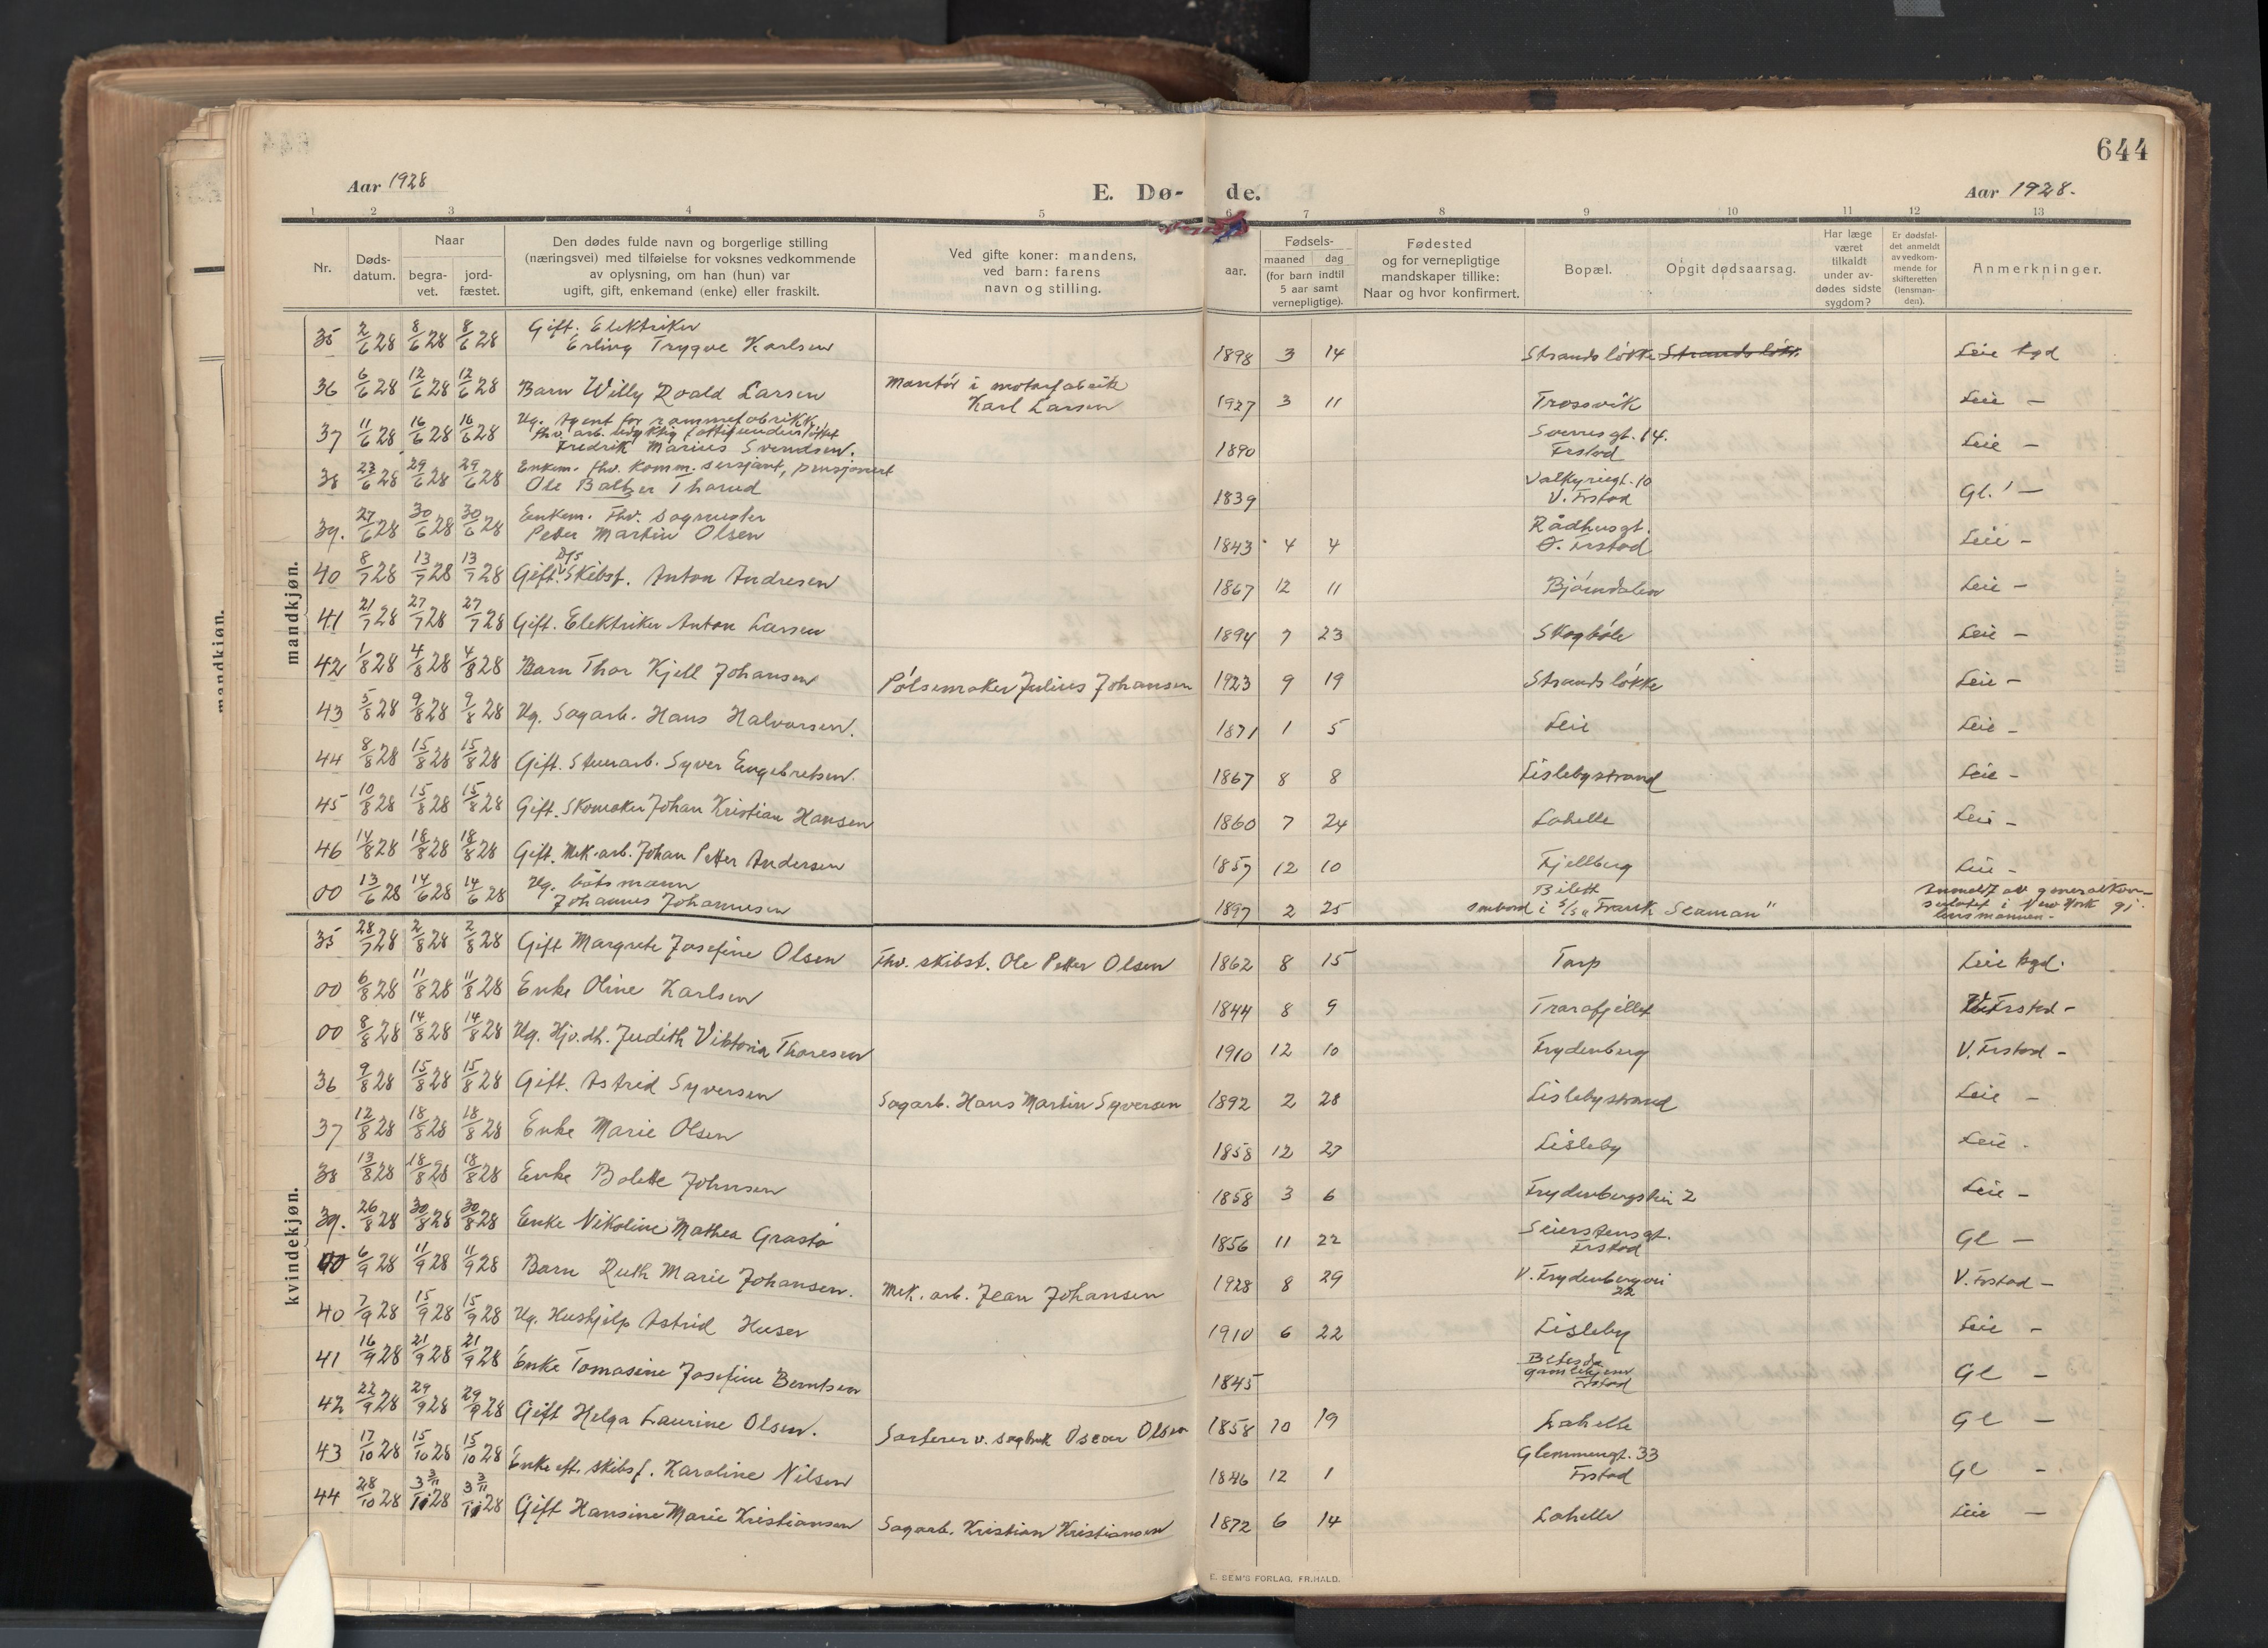 644
Aar 1928 E. Dø- de. Aar 1928.
1 2 3 4 5 6 7 8 9 10 11 12 13
Nr.
Døds-
datum.
Naar
begra-
vet.
jord-
fæstet.
Den dødes fulde navn og borgerlige stilling
(næringsvei) med tilføielse for voksnes vedkommende
av oplysning, om han (hun) var
ugift, gift, enkemand (enke) eller fraskilt.
Ved gifte koner: mandens,
ved barn: farens
navn og stilling.
Fødsels-
aar.
maaned dag
(for barn indtil
5 aar samt
vernepligtige).
Fødested
og for vernepligtige
mandskaper tillike:
Naar og hvor konfirmert.
Bopæl.
Opgit dødsaarsag.
Har læge
været
tilkaldt
under av-
dødes sidste
sygdom?
Er dødsfal-
det anmeldt
av vedkom-
mende for
skifteretten
(lensman-
den).
Anmerkninger.
mandkjøn.
Gift. Elektriker
35 2/6 28 8/6 28 8/6 28 Erling Trygve Karlsen 1898 3 14 Strandsløkke Strandsløkk. Leie kgd
36 6/6 28 12/6 28 12/6 28 Barn Willy Roald Larsen Montør i motorfabrik
Karl Larsen 1927 3 11 Trosvik Leie –
Ug. Agent for rammefabrikk,
fhv. arb.
37 11/6 28 16/6 28 16/6 28 Fredrik Marius Svendsen. 1890 Sverresgt. 14.
Frstad Leie –
Enkem. fhv. komm. sersjant, pensjonert
38 23/6 28 29/6 28 29/6 28 Ole Baltzer Tharud 1839 Valkyriegt. 10
V. Frstad Gl. –
Enkem. Fhv. sagmester
39. 27/6 28 30/6 28 30/6 28 Peder Martin Olsen 1843 4 4 Rådhusgt.
Ø. Frstad Leie –
40 8/7 28 13/7 28 13/7 28 Gift. Skibsf. Anton Andresen 1867 12 11 Bjørndalen Leie –
41 21/7 28 27/7 28 27/7 28 Gift. Elektriker Anton Larsen 1894 7 23 Skogbøle Leie –
42 1/8 28 4/8 28 4/8 28 Barn Thor Kjell Johansen Pølsemaker Julius Johansen 1923 9 19 Strandsløkke Leie –
43 5/8 28 9/8 28 9/8 28 Ug. Sagarb. Hans Halvorsen. 1871 1 5 Leie Leie –
44 8/8 28 15/8 28 15/8 28 Gift. Stuerarb. Syver Engebretsen. 1867 8 8 Lislebystrand Leie –
45 10/8 28 15/8 28 15/8 28 Gift. Skomaker Johan Kristian Hansen 1860 7 24 Lahelle Leie –
46 14/8 28 18/8 28 18/8 28 Gift. Mek. arb. Johan Petter Andersen 1857 12 10 Fjellberg Leie –
Ug. båtsmann
00 13/6 28 14/6 28 14/6 28 Johannes Johannesen 1897 2 25 ombord i S/S "Frank Seaman" Anmeldt av generalkon-
sulatet i New York gj.
lensmannen.
kvindekjøn.
35 28/7 28 2/8 28 2/8 28 Gift Margrete Josefine Olsen Fhv. skibst. Ole Petter Olsen 1862 8 15 Torp Leie kgd.
00 6/8 28 11/8 28 11/8 28 Enke Oline Karlsen 1844 8 9 Trarafjellet V. Frstad –
00 8/8 28 14/8 28 14/8 28 Ug. Hjv. dt. Judith Viktoria Thoresen 1910 12 10 Frydenberg V. Frstad –
36 9/8 28 15/8 28 15/8 28 Gift. Astrid Syversen Sagarb. Hans Martin Syversen 1892 2 28 Lislebystrand Leie –
37 12/8 28 18/8 28 18/8 28 Enke Marie Olsen 1858 12 27 Lisleby Leie –
38 13/8 28 18/8 28 18/8 28 Enke Bolette Johnsen 1858 3 6 Frydenbergsvei 2 Leie –
39. 26/8 28 30/8 28 30/8 28 Enke Nikoline Mathea Grastø 1856 11 22 Seierstensgt.
Frstad Gl –
00 6/9 28 11/9 28 11/9 28 Barn Ruth Marie Johansen. Mek. arb. Jean Johansen 1928 8 29 V. Frydenbergvei
22 V. Frstad –
40 7/9 28 15/9 28 15/9 28 Ug. Hushjelp Astrid Huser 1910 6 22 Lisleby Leie –
41 16/9 28 21/9 28 21/9 28 Enke Tomasine Josefine Berntsen 1845 Betesda
gamlehjem
Frstad Gl –
42 22/9 28 29/9 28 29/9 28 Gift Helga Laurine Olsen. Sorterer v. sagbruk Oscar Olsen 1858 10 19 Lahelle Gl –
43 17/10 28 15/10 28 15/10 28 Enke eft. skibsf. Karoline Nilsen 1846 12 1 Glemmengt. 33
Frstad Gl –
44 28/10 28 3/11 28 3/11 28 Gift Hansine Marie Kristiansen Sagarb. Kristian Kristiansen 1872 6 14 Lahelle Leie –
E. SEM'S FORLAG, FR.HALD.